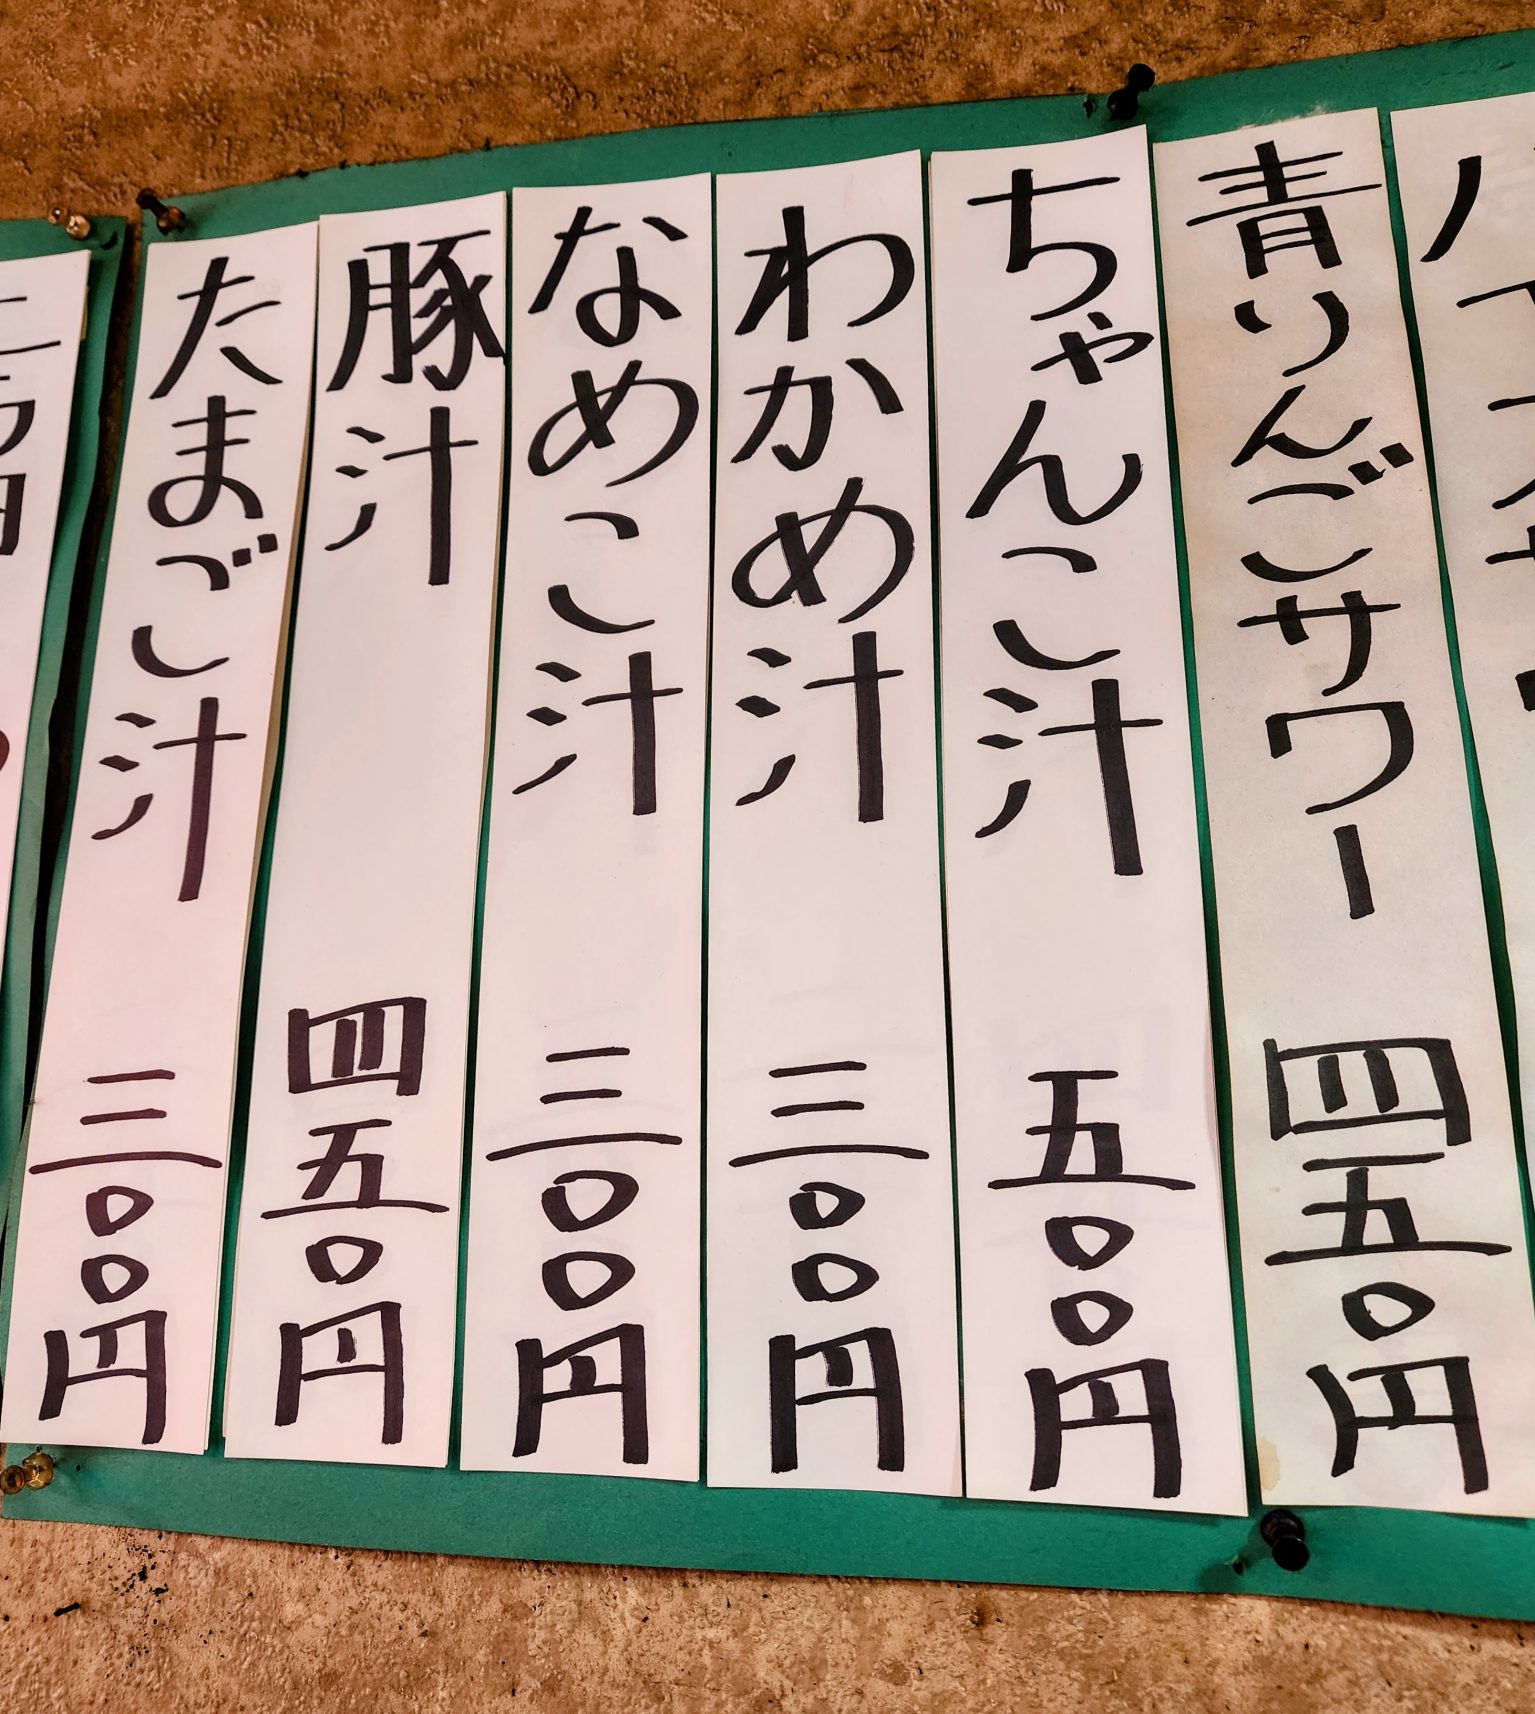 青りんごサワー 四五〇円
ちゃんこ汁 五〇〇円
わかめ汁 三〇〇円
なめこ汁 三〇〇円
豚汁 四五〇円
たまご汁 三〇〇円